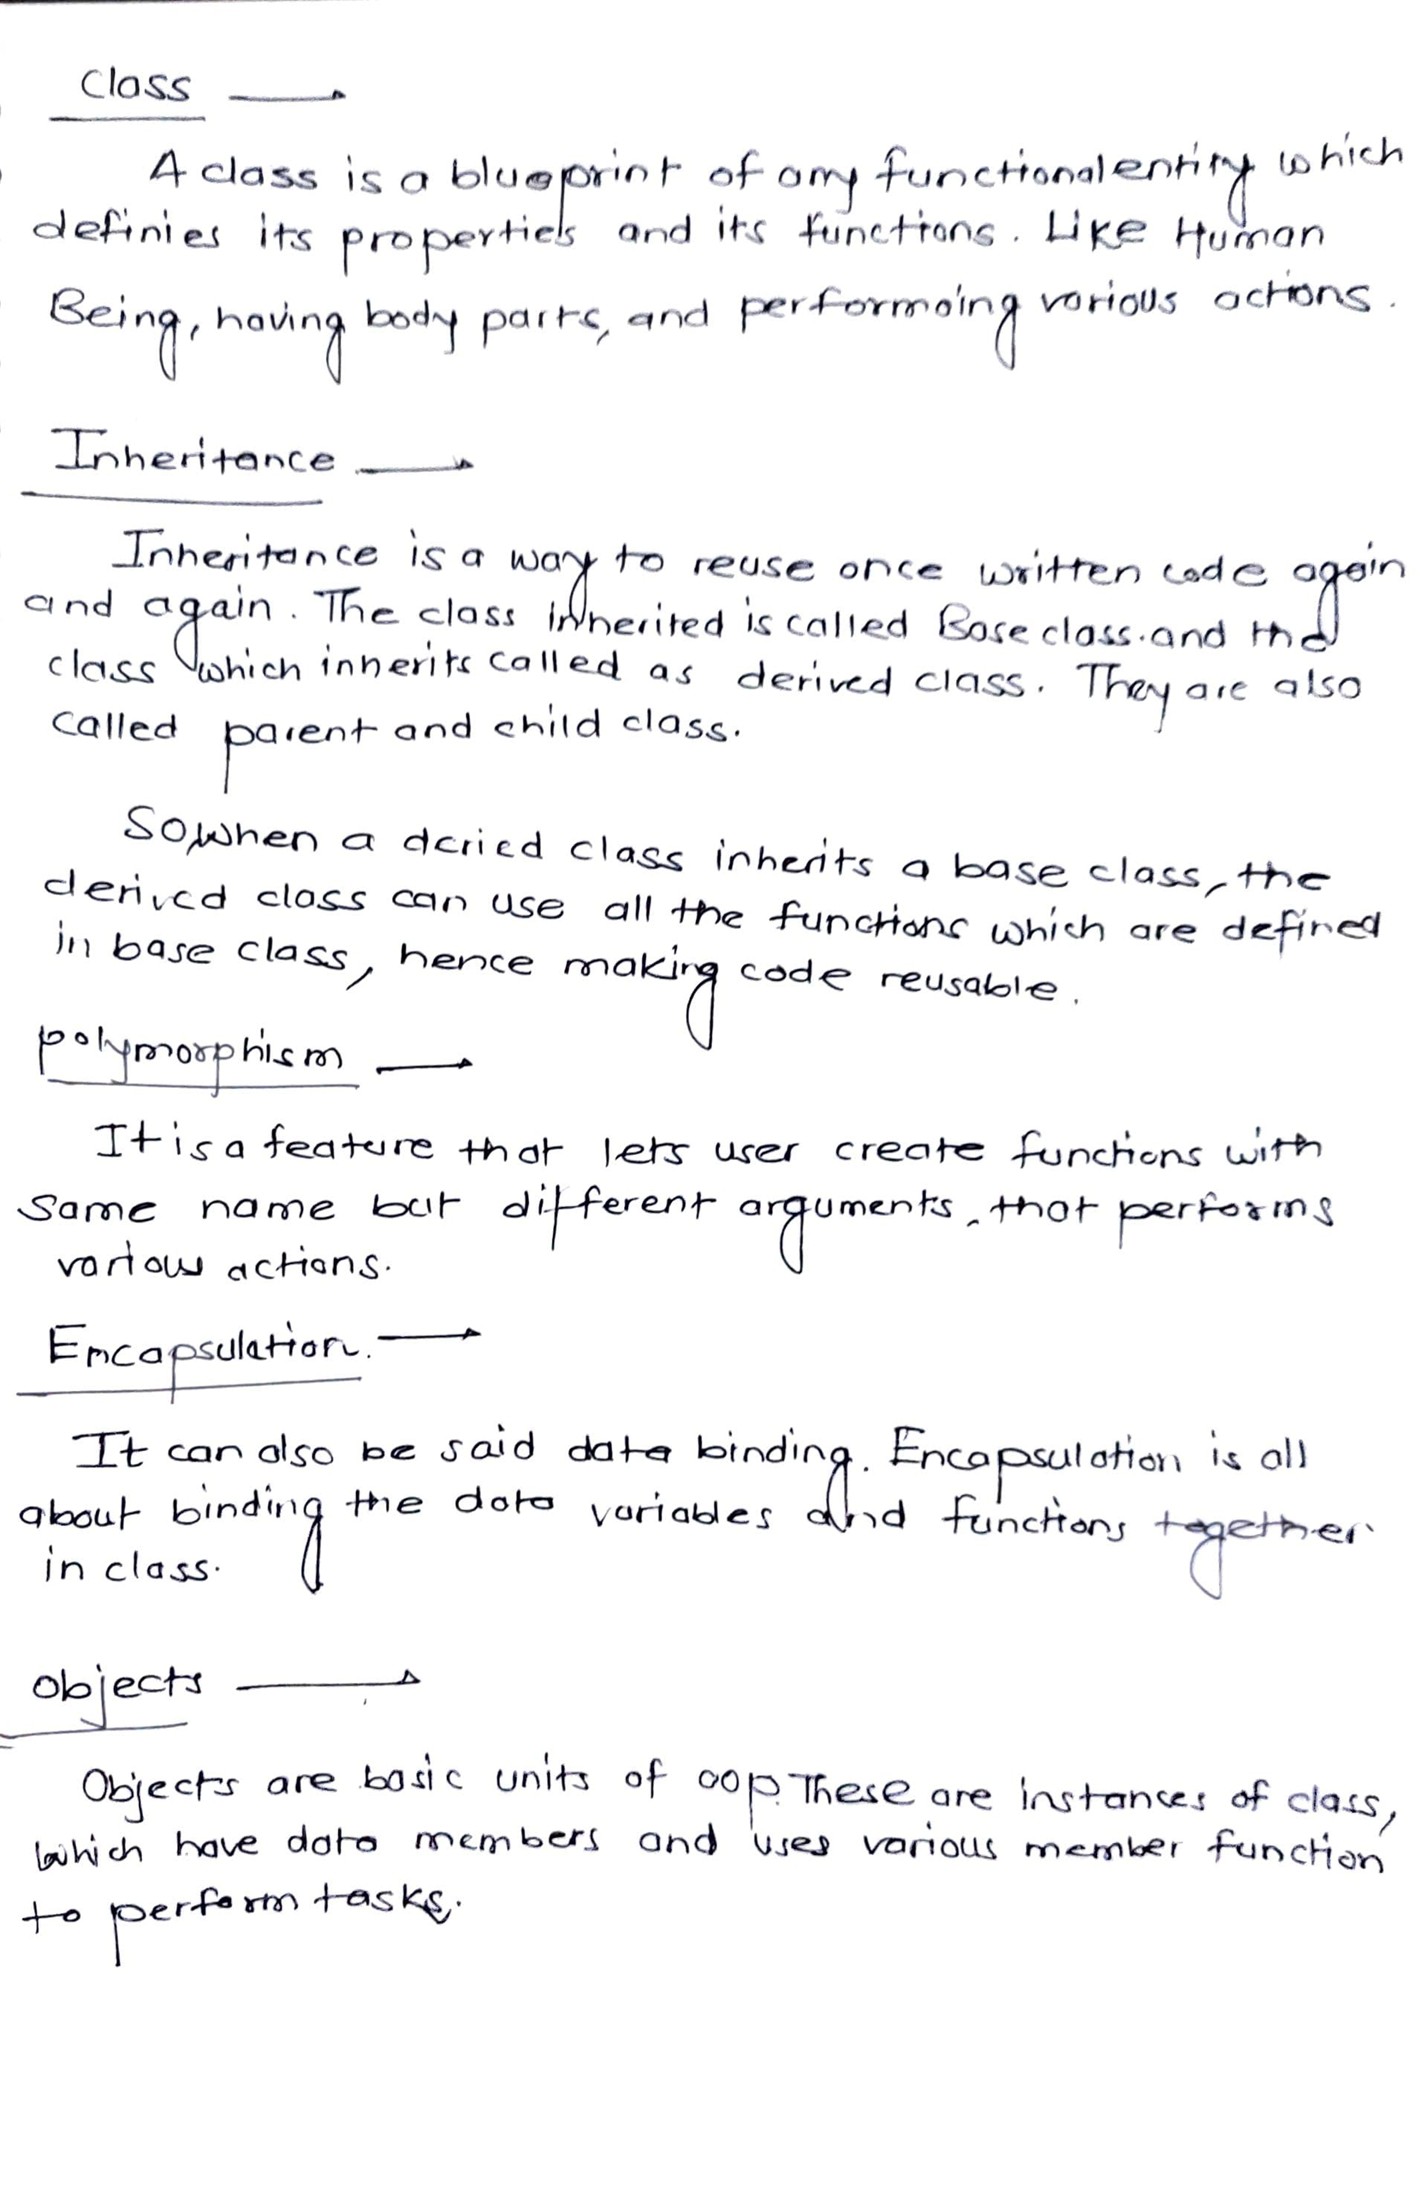 Class →
A class is a blueprint of any functional entity which
definies its properties and its functions. Like Human
Being, having body parts, and performing various actions.
Inheritance →
Inheritance is a way to reuse once written code again
and again. The class inherited is called Base class. and the
class which inherits called as derived class. They are also
called parent and child class.
So when a deried class inherits a base class, the
derived class can use all the functions which are defined
in base class, hence making code reusable.
polymorphism →
It is a feature that lets user create functions with
same name but different arguments, that performs
various actions.
Encapsulation. →
It can also be said data binding. Encapsulation is all
about binding the data variables and functions together
in class.
objects →
Objects are basic units of oop. These are instances of class,
which have data members and uses various member function
to perform tasks.